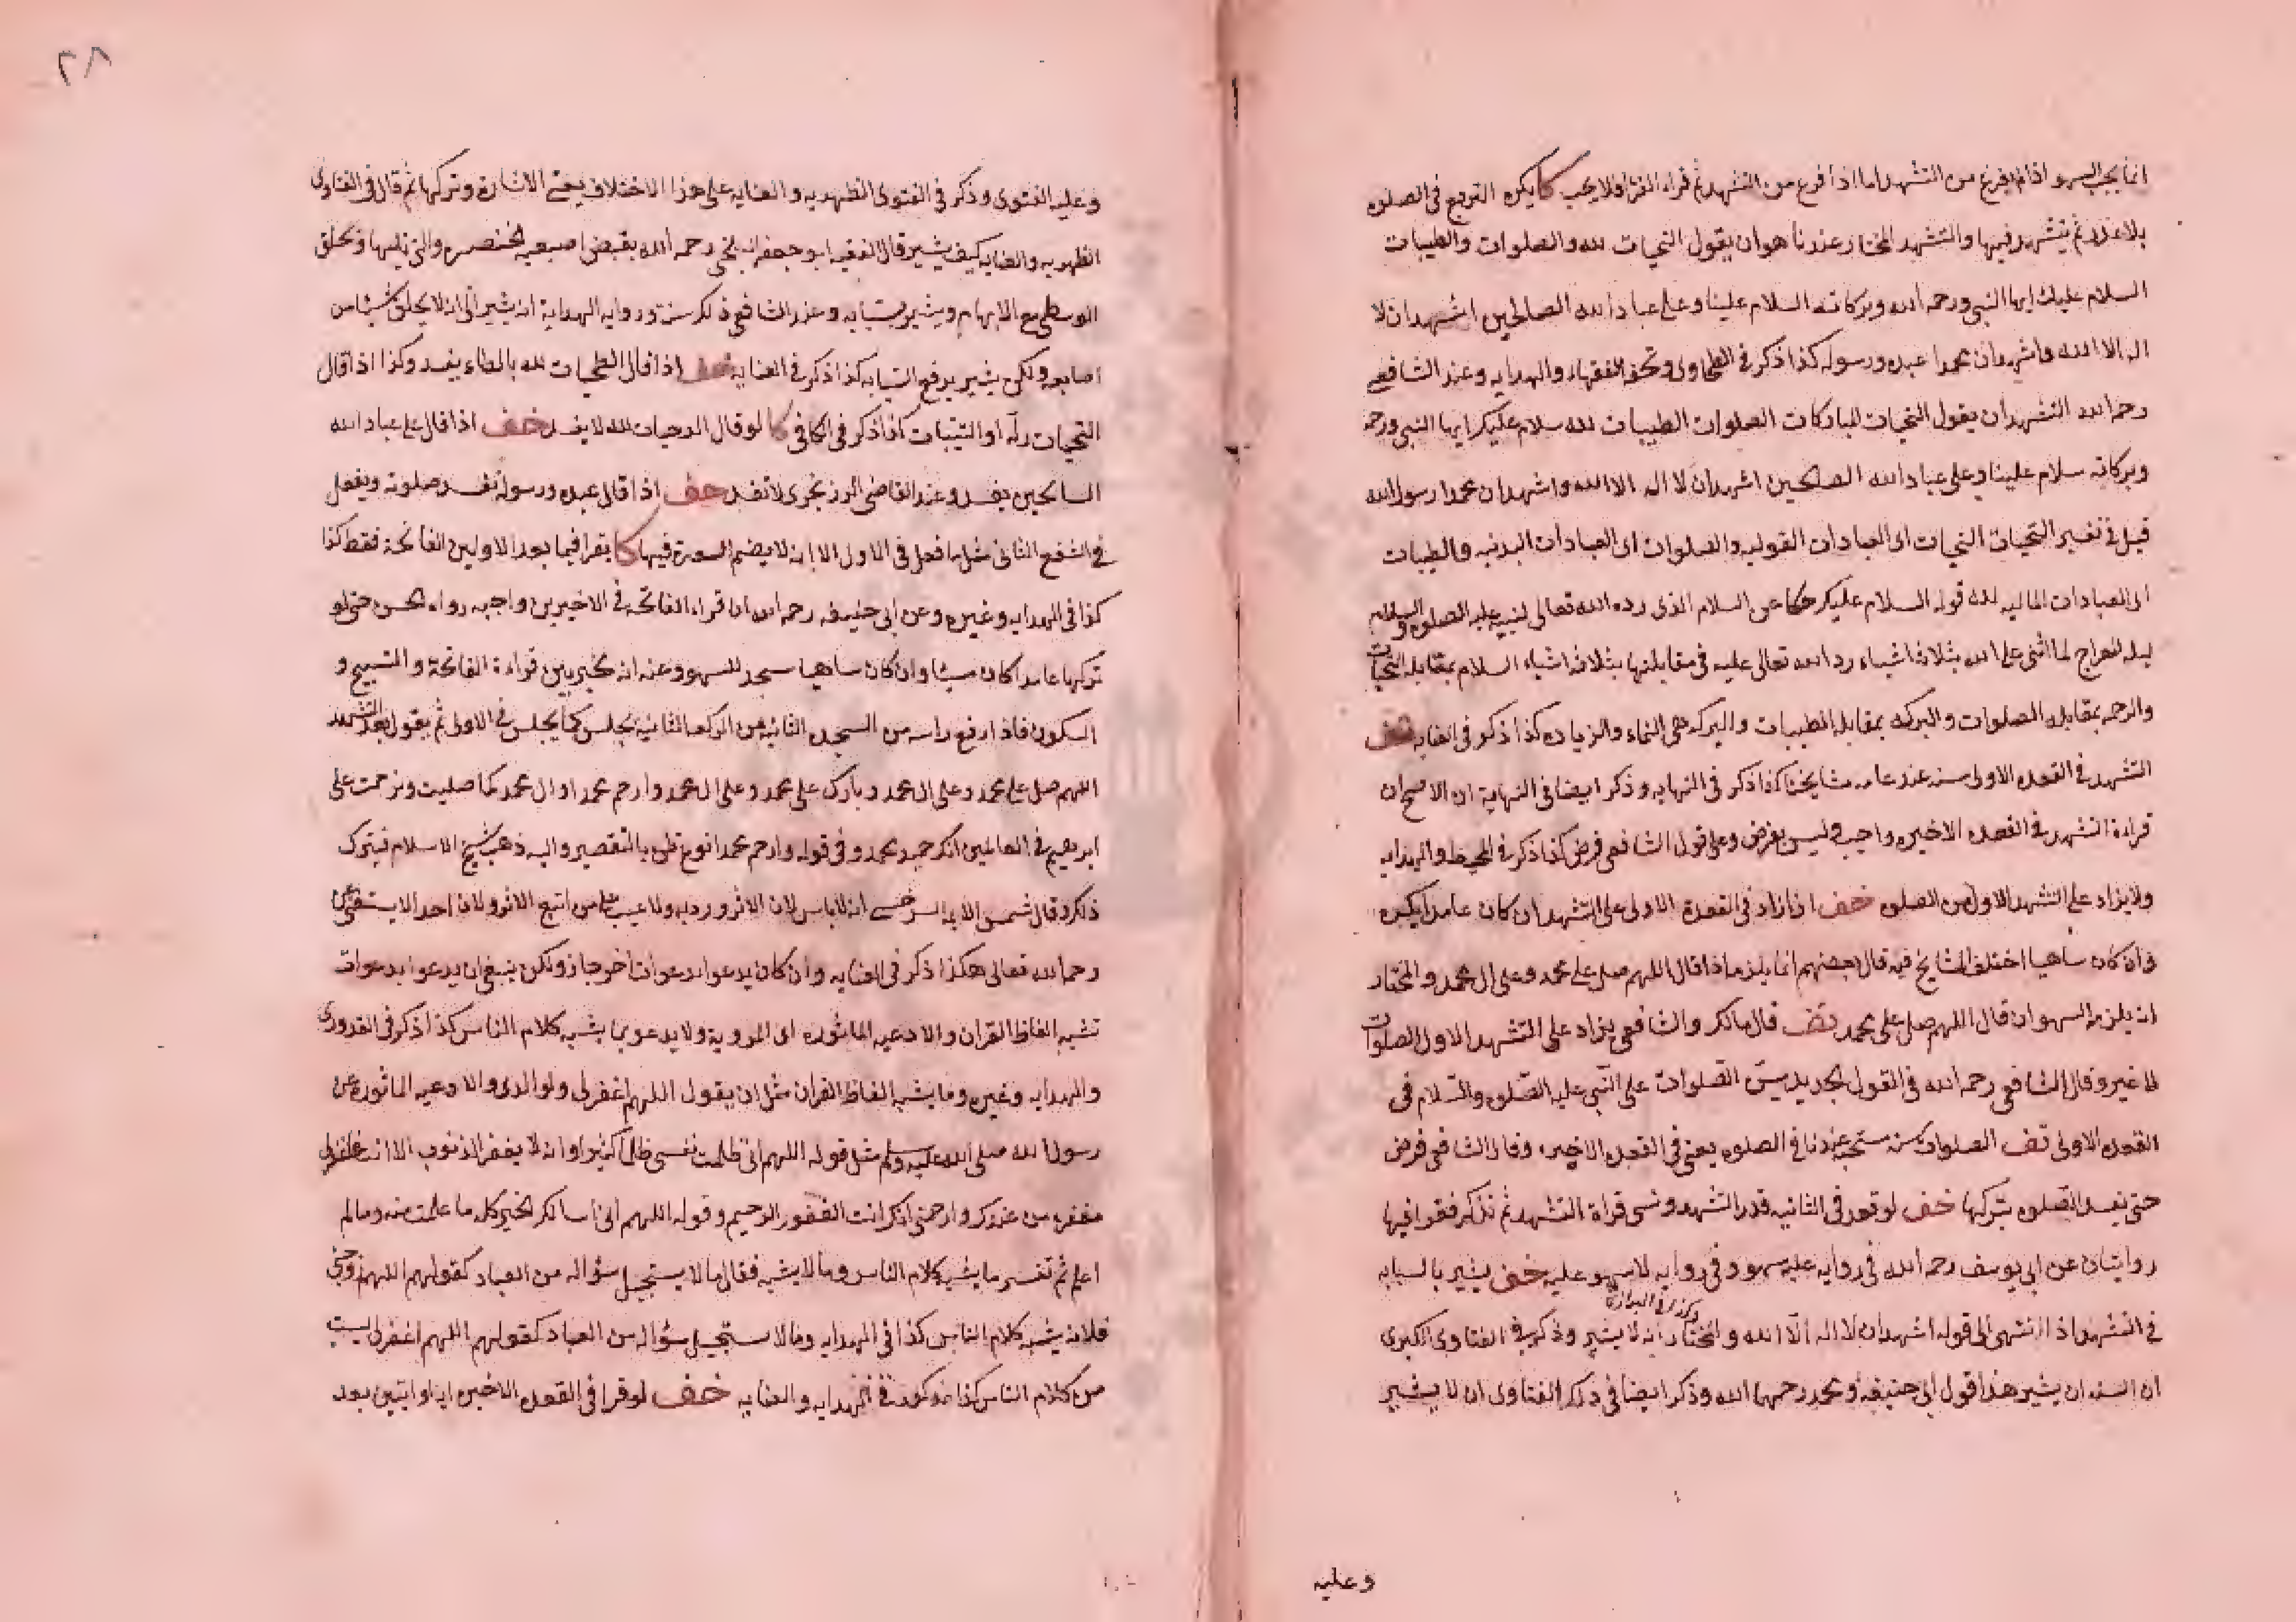 انما يجب السهو اذا لم يفرغ من التشهد اما اذا فرغ من التشهد ثم قراء القرأ فلا يجب كا يكره التربع فى الصلوه
بلا عذر ثم يتشهد فيها والتشهد المختار عندنا هو ان يقول التحيات لله والصلوات والطيبات
السلام عليك ايها النبى ورحمه الله وبركاته السلام علينا وعلى عباد الله الصالحين اشهد ان لا
اله الا الله واشهد ان محمدا عبده ورسوله كذا ذكر فى الطحاوى وتحفه الفقهاء والهدايه وعند الشافعى
رحمه الله التشهد ان يقول التحيات المباركات الصلوات الطيبات لله سلام عليك ايها النبى ورحمه
وبركاته سلام علينا وعلى عباد الله الصلحين اشهد ان لا اله الا الله واشهد ان محمدا رسول الله
قيل فى تفسير التحيات التحيات اى العبادات القوليه والصلوات اى العبادات البدنيه والطيبات
اى العبادات الماليه لله قوله السلام عليك حكا عن السلام الذى رده الله تعالى لنبيه عليه الصلوه والسلام
ليله المعراج لما اثنى على الله بثلاثه اشياء رد الله تعالى عليه فى مقابلتها بثلاثه اشياء السلام بمقابله التحيات
والرحمه بمقابله الصلوات والبركه بمقابله الطيبات والبركه هى النماء والزياده كذا ذكر فى العنايه
التشهد فى القعده الاولى سنه عند عامه مشايخنا كذا ذكر فى النهايه وذكر ايضا فى النهاية ان الاصح ان
قراءة التشهد فى القعده الاخيره واجب وليس بفرض وعلى قول الشافعى فرض كذا ذكر فى المحيط والهدايه
ولا يزاد على التشهد الاول من الصلوه خف اذا زاد فى القعدة الاولى على التشهد ان كان عامدا يكره
وان كان ساهيا اختلف المشايخ فيه قال بعضهم انما يلزمه اذا قال اللهم صل على محمد وعلى ال محمد والمختار
انه يلزمه السهو ان قال اللهم صل على محمد قف قال مالك والشافعى يزاد على التشهد الاول الصلوات
لا غير وقال الشافعى رحمه الله فى القول الجديد يسن الصلوات على النبى عليه الصلوه والسلام فى
القعده الاولى قف الصلوات سنه مستحبه عندنا فى الصلوه يعنى فى القعده الاخيره وقال الشافعى فرض
حتى تفسد الصلوه بتركها خف لو قعد فى الثانيه قدر التشهد ونسى قراة التشهد ثم تذكر فقرا فيها
روايتان عن ابى يوسف رحمه الله فى روايه عليه سهو وفى روايه لا سهو عليه خف يشير بالسبابه
وكذا فى البزازية
فى التشهد اذا انتهى الى قوله اشهد ان لا اله الا الله والمختار انه لا يشير وذكر فى الفتاوى الكبرى
ان السنه ان يشير هذا قول ابى حنيفه ومحمد رحمهما الله وذكر ايضا فى ذلك الفتاوى ان لا يشير
وعليه
٣٨
وعليه الفتوى وذكر فى الفتوى الظهيريه والعنايه على هذا الاختلاف يعنى الاشارة وتركها ثم قال فى الفتاوى
الظهيريه والعنايه كيف يشير قال الفقيه ابو جعفر انه رحمه الله يقبض اصبعيه الخنصر والتى تليها ويحلق
الوسطى مع الابهام ويشير بسبابه وعند الشافعى ذلك سنة وروايه الهداية انه يشير الى ان لا يحلق شيئا من
اصابعه ولكن يشير برفع السبابه كذا ذكر فى العنايه خف اذا قال الطحيات لله بالطاء يفسد وكذا اذا قال
كذا ذكر فى الكافى كا لو قال الدحيات لله لا يفسد خف اذا قال على عباد الله
السالحين يفسد وعند القاضى الزرنجرى لا تفسد خف اذا قال عبده ورسوله تفسد صلوته ويفعل
فى الشفع الثانى مثل ما فعل فى الاول الا انه لا يضم السورة فيها كا يقرا فيما بعد الاوليين الفاتحة فقط كذا
كذا فى الهدايه وغيره وعن ابى حنيفه رحمه الله ان قراءه الفاتحة فى الاخيرين واجبه رواه الحسن حتى لو
تركها عامدا كان مسيئا وان كان ساهيا سجد للسهو وعنه انه تخير بين قراءة الفاتحة والتسبيح و
السكون فاذا رفع راسه من السجده الثانيه من الركعه الثانيه يجلس كما يجلس فى الاولى ثم يقول بعد التشهد
اللهم صل على محمد وعلى ال محمد وبارك على محمد وعلى ال محمد وارحم محمدا وال محمد كما صليت وترحمت على
ابرهيم فى العالمين انك حميد مجيد وفى قوله وارحم محمدا نوع ظن بالتقصير واليه ذهب شيخ الاسلام فيترك
ذلك وقال شمس الائمه السرخسى انه لا باس لان الاثر ورد به ولا عيب على من اتبع الاثر ولان احدا لا يستغنى عن
رحمه الله تعالى هكذا ذكر فى العنايه وان كان يدعوا بدعوات اخر جاز ولكن ينبغى ان يدعوا بدعوات
تشبه الفاظ القران والادعيه الماثوره اى المرويه ولا يدعو بما يشبه كلام الناس كذا ذكر فى القدورى
والهدايه وغيره وما يشبه الفاظ القران مثل ان يقول اللهم اغفرلى ولوالدى والادعيه الماثوره عن
رسول الله صلى الله عليه وسلم مثل قوله اللهم انى ظلمت نفسى ظلما كثيرا وانه لا يغفر الذنوب الا انت فاغفرلى
مغفره من عندك وارحمنى انك انت الغفور الرحيم وقوله اللهم انى اسالك الخير كله ما علمت منه وما لم
اعلم ثم تفسير ما يشبه كلام الناس وما لا يشبه فقال ما لا يستحيل سؤاله من العباد كقولهم اللهم زوجنى
فلانه يشبه كلام الناس كذا فى الهدايه وما لا يستحيل سؤاله من العباد كقولهم اللهم اغفرلى ليست
من كلام الناس كذا مذكور فى الهدايه والعنايه خف لو قرا فى القعده الاخيره اية او ايتين بعد